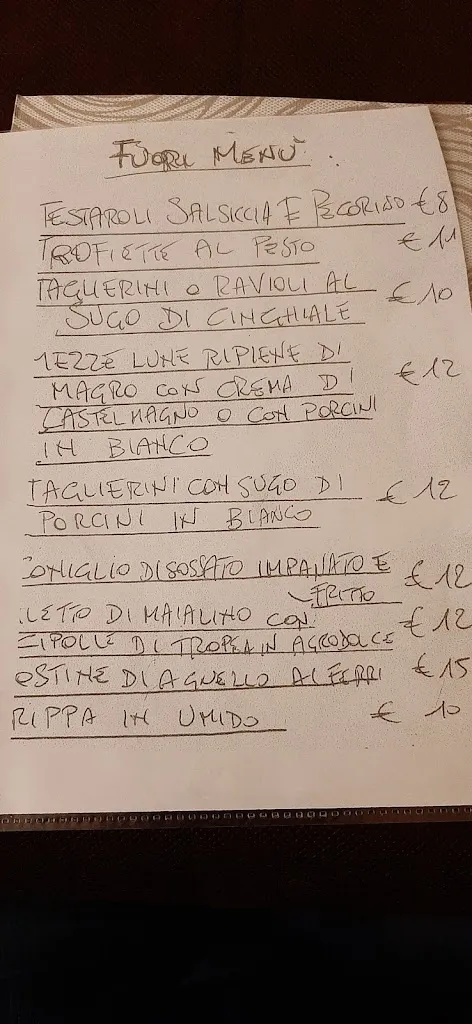 FUORI MENÙ
TESTAROLI SALSICCIA E PECORINO €8
TROFIETTE AL PESTO €11
TAGLIERINI O RAVIOLI AL €10
SUGO DI CINGHIALE
MEZZE LUNE RIPIENE DI €12
MAGRO CON CREMA DI
CASTELMAGNO O CON PORCINI
IN BIANCO
TAGLIERINI CON SUGO DI €12
PORCINI IN BIANCO
CONIGLIO DISOSSATO IMPANATO E €12
FRITTO
ILETTO DI MAIALINO CON €12
CIPOLLE DI TROPEA IN AGRODOLCE
OSTINE DI AGNELLO AI FERRI €15
RIPPA IN UMIDO € 10